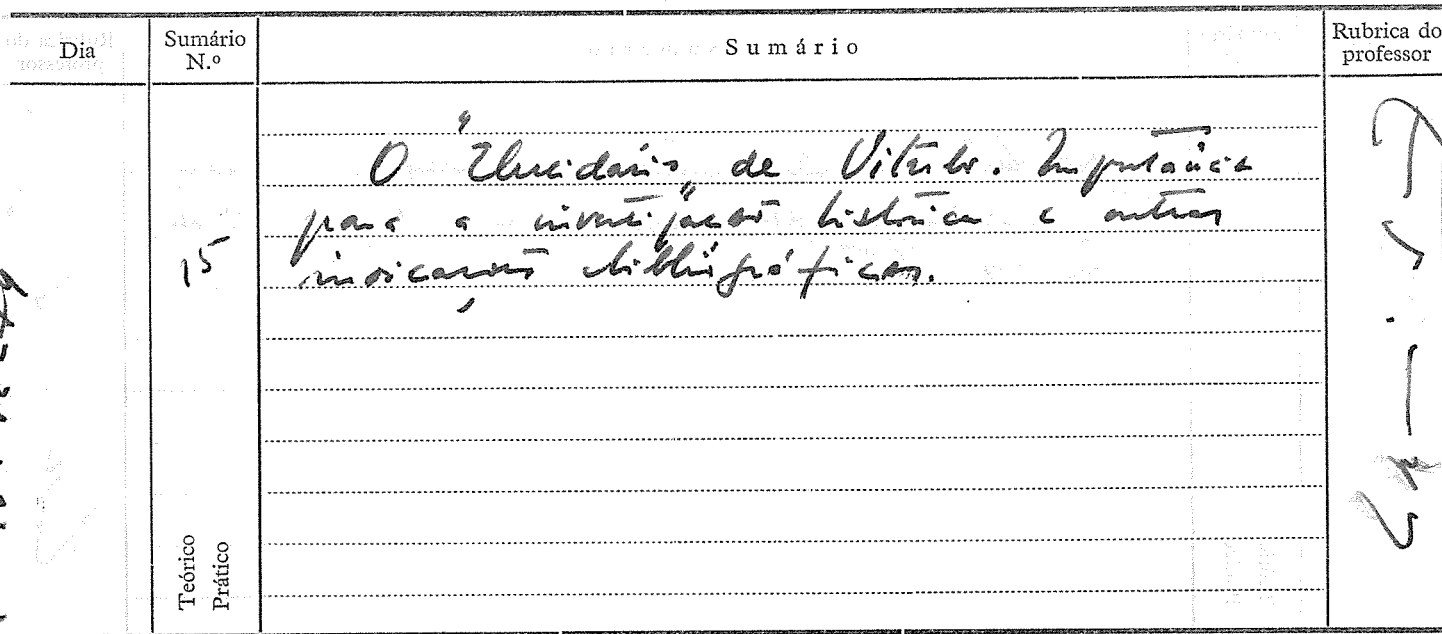 Dia
Sumário N.º
Sumário
Rubrica do professor
15
O "Elucidário" de Viterbo. Importância
para a investigação histórica e outras
indicações bibliográficas.
Teórico
Prático